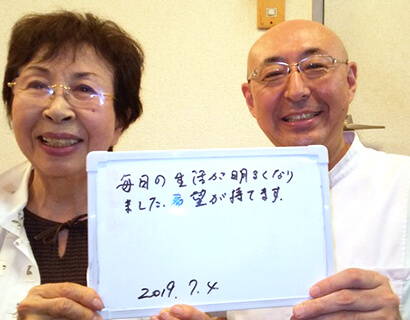 毎日の生活が明るくなり
ました.希望が持てます.
2019.7.4